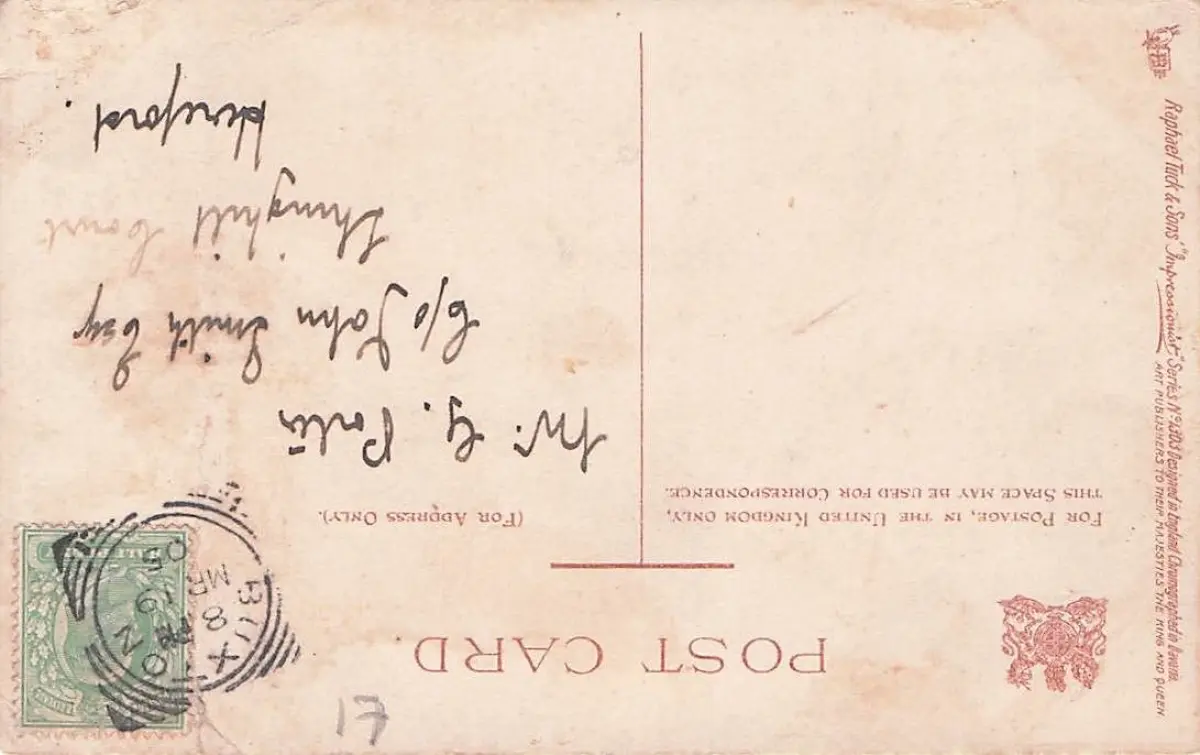 POST CARD.
FOR POSTAGE, IN THE UNITED KINGDOM ONLY,
THIS SPACE MAY BE USED FOR CORRESPONDENCE.
(FOR ADDRESS ONLY).
BUXTON
8 PM
MR 19
05
Mr. G. Porter
C/o John Smith Esq
Thinghill Court
Hereford.
Raphael Tuck & Sons' "Impressionist" Series No 1303 Designed in England Chromographed in Bavaria
ART PUBLISHERS TO THEIR MAJESTIES THE KING AND QUEEN
17